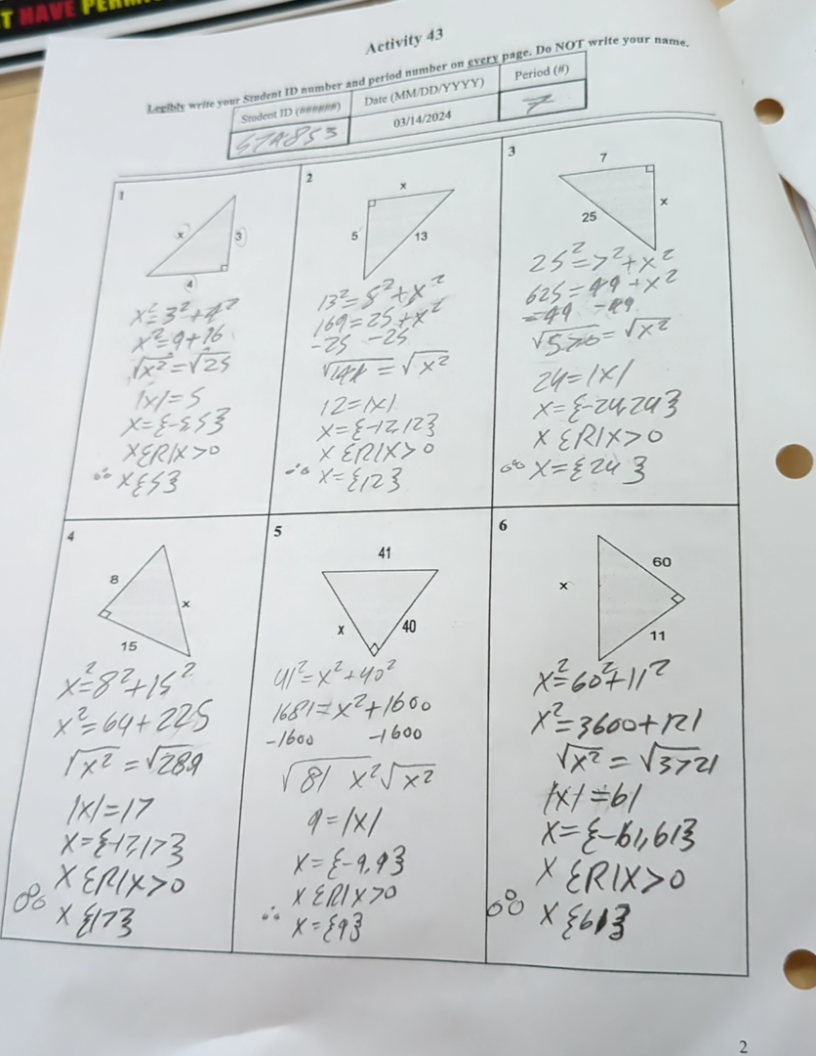 T HAVE PERM
Activity 43
Legibly write your Student ID number and period number on every page. Do NOT write your name.
Student ID (######)
Date (MM/DD/YYYY)
Period (#)
03/14/2024
7
1
x
3
4
x²=3²+4²
x²=9+16
√x²=√25
|x|=5
x={-5,5}
x{R|x>0
∴ x{5}
2
x
5
13
13²=5²+x²
169=25+x²
-25 -25
√144=√x²
12=|x|
x={-12,12}
x{R|x>0
∴ x={12}
3
7
x
25
25²=7²+x²
625=49+x²
-49 -49
√576=√x²
24=|x|
x={-24,24}
x{R|x>0
∴ x={24}
4
8
x
15
x²=8²+15²
x²=64+225
√x²=√289
|x|=17
x={-17,17}
x{R|x>0
∴ x{17}
5
41
x
40
41²=x²+40²
1681=x²+1600
-1600 -1600
√81 x²√x²
9=|x|
x={-9,9}
x{R|x>0
∴ x={9}
6
60
x
11
x²=60²+11²
x²=3600+121
√x²=√3721
|x|=61
x={-61,61}
x{R|x>0
∴ x{61}
2